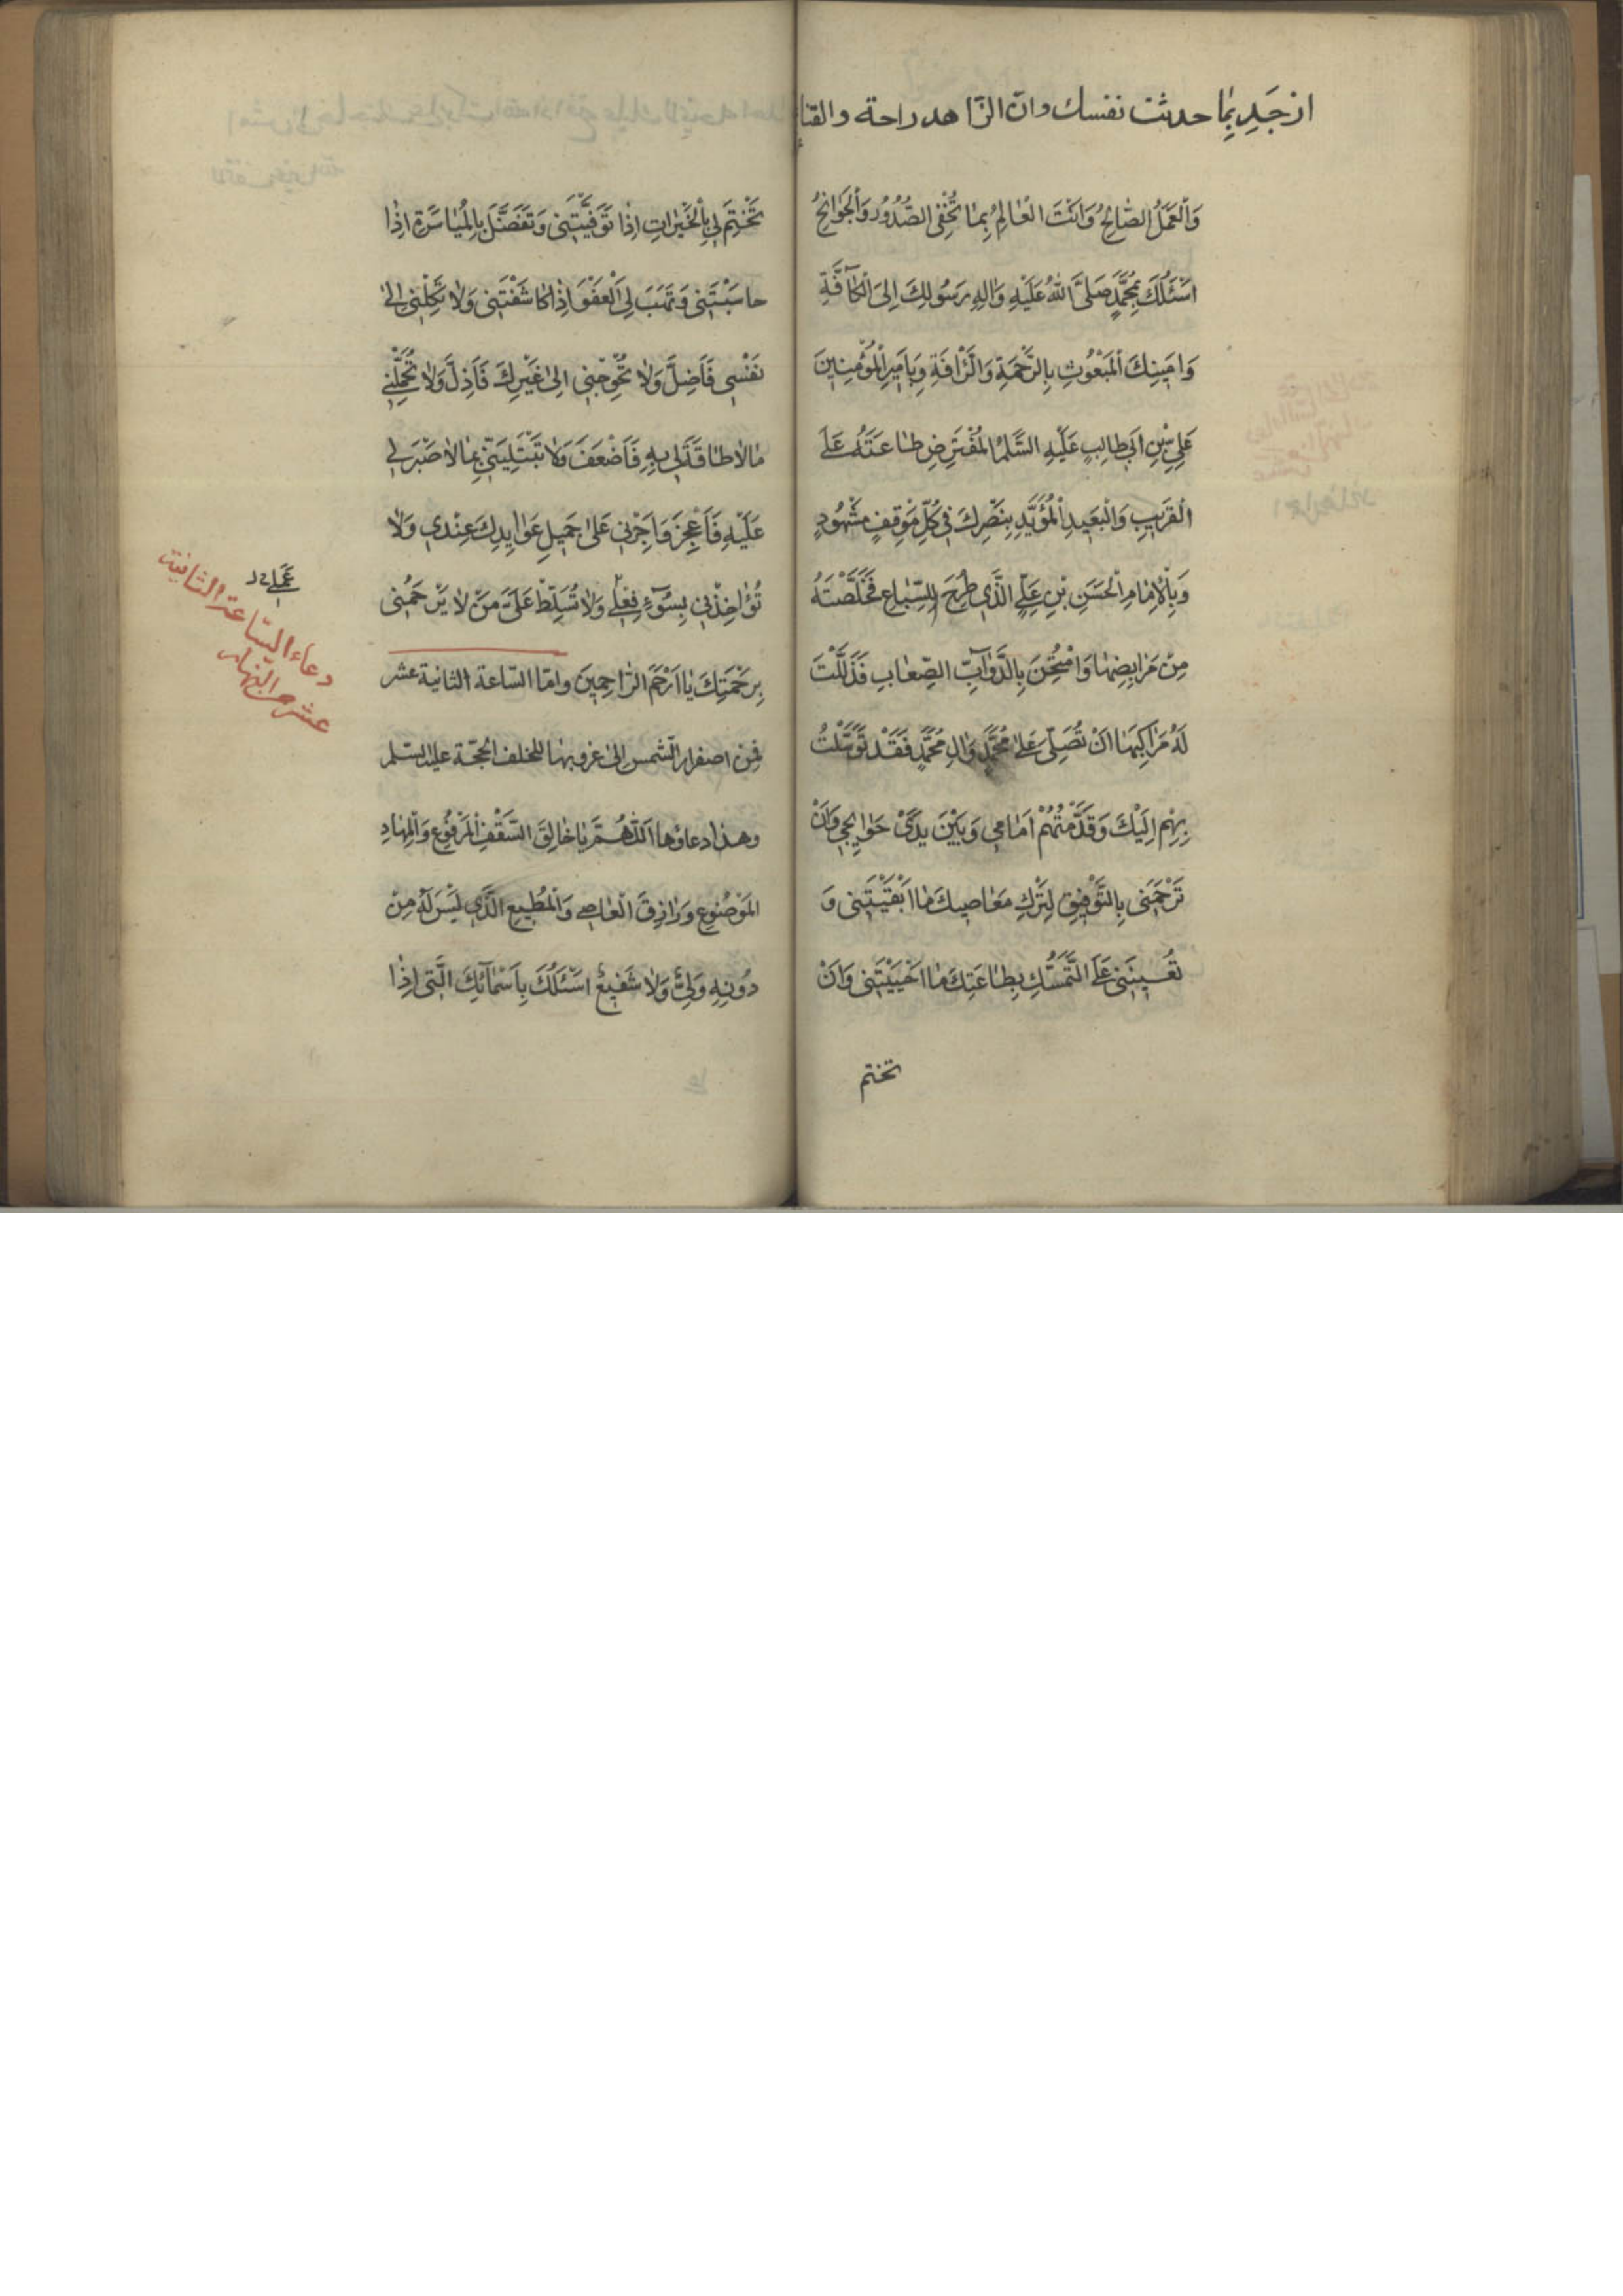 از جَدِ بِمٰا حدثت نفسك وان الزّاهد راحة والقنا
وَالْعَمَلُ الصّٰالِحُ وَاَنْتَ الْعٰالِمُ بِمٰا تُخْفِى الصُّدُورُ وَالْجَوٰانِحُ
اَسْئَلُكَ بِمُحَمَّدٍ صَلَّى اللّٰهُ عَلَيْهِ وَاٰلِهِ رَسُولِكَ اِلَى الْكٰافَّةِ
وَاَمٖينِكَ الْمَبْعُوثِ بِالرَّحْمَةِ وَالرَّافَةِ وَبِاَمٖيرِ الْمُؤْمِنٖينَ
عَلِىِّ بْنِ اَبٖى طٰالِبٍ عَلَيْهِ السَّلٰمُ الْمُفْتَرَضِ طٰاعَتَهُ عَلَى
الْقَرٖيبِ وَالْبَعٖيدِ الْمُؤَيَّدِ بِنَصْرِكَ فٖى كُلِّ مَوْقِفٍ مَشْهُودٍ
وَبِالْاِمٰامِ الْحَسَنِ بْنِ عَلِىٍّ الَّذٖى طُرِحَ لِلسِّبٰاعِ فَخَلَّصْتَهُ
مِنْ مَرٰابِضِهٰا وَامْتُحِنَ بِالدَّوٰآبِّ الصِّعٰابِ فَذَلَّلْتَ
لَهُ مَرٰاكِبَهٰا اَنْ تُصَلِّىَ عَلٰى مُحَمَّدٍ وَاٰلِ مُحَمَّدٍ فَقَدْ تَوَسَّلْتُ
بِهِمْ اِلَيْكَ وَقَدَّمْتُهُمْ اَمٰامٖى وَبَيْنَ يَدَىْ حَوٰائِجٖى وَاَنْ
تَرْحَمَنٖى بِالتَّوْفٖيقِ لِتَرْكِ مَعٰاصٖيكَ مٰا اَبْقَيْتَنٖى وَ
تُعٖينَنٖى عَلَى التَّمَسُّكِ بِطٰاعَتِكَ مٰا اَحْيَيْتَنٖى وَاَنْ
تختم
تَخْتِمَ لٖى بِالْخَيْرٰاتِ اِذٰا تَوَفَّيْتَنٖى وَتَفَضَّلَ بِالْمُيٰاسَرَةِ اِذٰا
حٰاسَبْتَنٖى وَتَهَبَ لِىَ الْعَفْوَ اِذٰا كٰاشَفْتَنٖى وَلٰا تَكِلْنٖى اِلٰى
نَفْسٖى فَاَضِلَّ وَلٰا تُحْوِجْنٖى اِلٰى غَيْرِكَ فَاَذِلَّ وَلٰا تُحَمِّلْنٖى
مٰا لٰا طٰاقَةَ لٖى بِهِ فَاَضْعَفَ وَلٰا تَبْتَلِيَنّٖى بِمٰا لٰا صَبْرَ لٖى
عَلَيْهِ فَاَعْجِزَ وَاَجِرْنٖى عَلٰى جَمٖيلِ عَوٰايِدِكَ عِنْدٖى وَلٰا
تُؤٰاخِذْنٖى بِسُوٓءِ فِعْلٖى وَلٰا تُسَلِّطْ عَلَىَّ مَنْ لٰا يَرْحَمُنٖى
بِرَحْمَتِكَ يٰا اَرْحَمَ الرّٰاحِمٖينَ وامّا السّاعة الثانية عشر
فمِن اصفرار الشمس الى غروبها للخلف الحجّة عليه السّلم
وهذا دعاؤها اَللّٰهُمَّ يٰا خٰالِقَ السَّقْفِ الْمَرْفُوعِ وَالْمِهٰادِ
الْمَوْضُوعِ وَرٰازِقَ الْعٰاصٖى وَالْمُطٖيعِ الَّذٖى لَيْسَ لَهُ مِنْ
دُونِهِ وَلِىٌّ وَلٰا شَفٖيعٌ اَسْئَلُكَ بِاَسْمٰآئِكَ الَّتٖى اِذٰا
دعاء السّاعة الثانية
عشر من النّهار